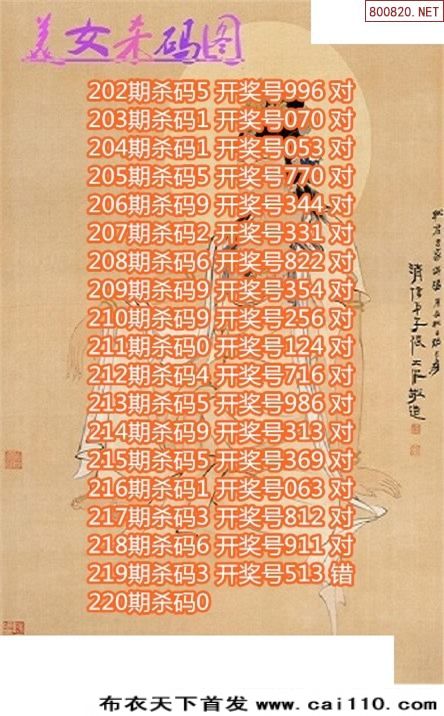 800820.NET
美女杀码图
202期杀码5 开奖号996 对
203期杀码1 开奖号070 对
204期杀码1 开奖号053 对
205期杀码5 开奖号770 对
206期杀码9 开奖号344 对
207期杀码2 开奖号331 对
208期杀码6 开奖号822 对
209期杀码9 开奖号354 对
210期杀码9 开奖号256 对
211期杀码0 开奖号124 对
212期杀码4 开奖号716 对
213期杀码5 开奖号986 对
214期杀码9 开奖号313 对
215期杀码5 开奖号369 对
216期杀码1 开奖号063 对
217期杀码3 开奖号812 对
218期杀码6 开奖号911 对
219期杀码3 开奖号513 错
220期杀码0
布衣天下首发 www.cai110.com